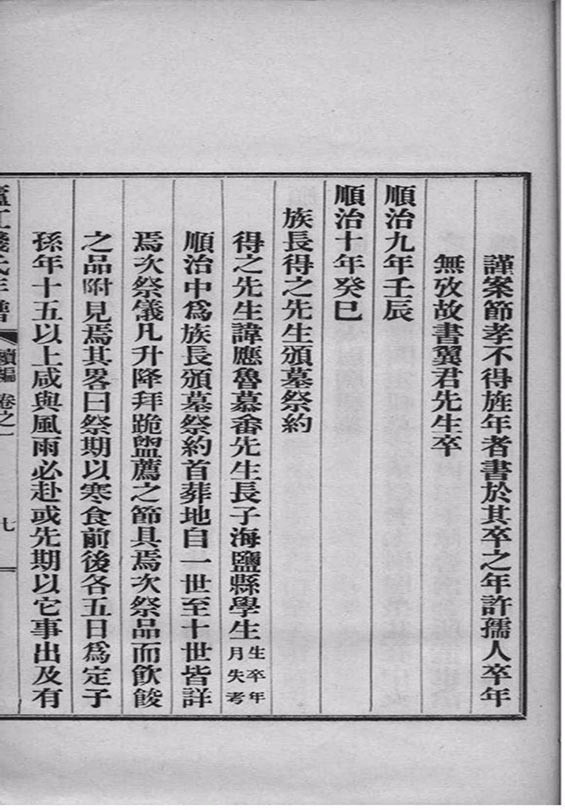 謹案節孝不得旌年者書於其卒之年許孺人卒年
無攷故書翼君先生卒
順治九年壬辰
順治十年癸巳
族長得之先生頒墓祭約
得之先生諱應魯慕畬先生長子海鹽縣學生生卒年月失考
順治中爲族長頒墓祭約首葬地自一世至十世皆詳
焉次祭儀凡升降拜跪盥薦之節具焉次祭品而飮餕
之品附見焉其畧曰祭期以寒食前後各五日爲定子
孫年十五以上咸與風雨必赴或先期以它事出及有
廬江錢氏年譜 續編 卷之一 七